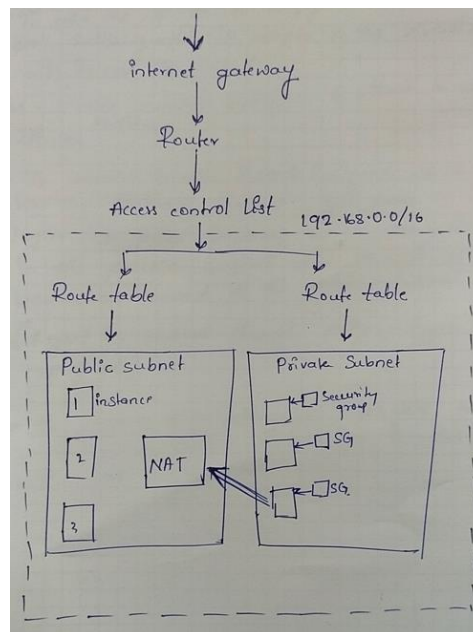 internet gateway
Router
Access control List
192.168.0.0/16
Route table
Route table
Public subnet
1 instance
2
NAT
3
Private Subnet
Security
group
SG
SG.